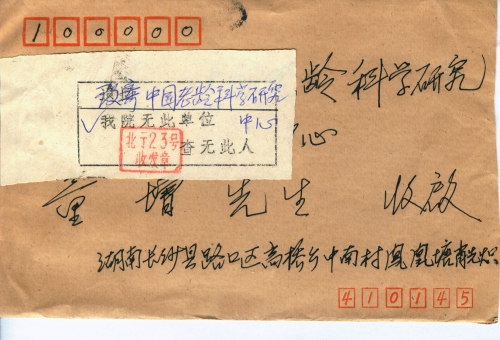 100000
中国老龄科学研究
✓我院无此单位 中心
北于23号
收发章
查无此人
龄科学研究
心
童 先生 收启
湖南长沙县路口区高桥乡中南村凤凰塘
410145